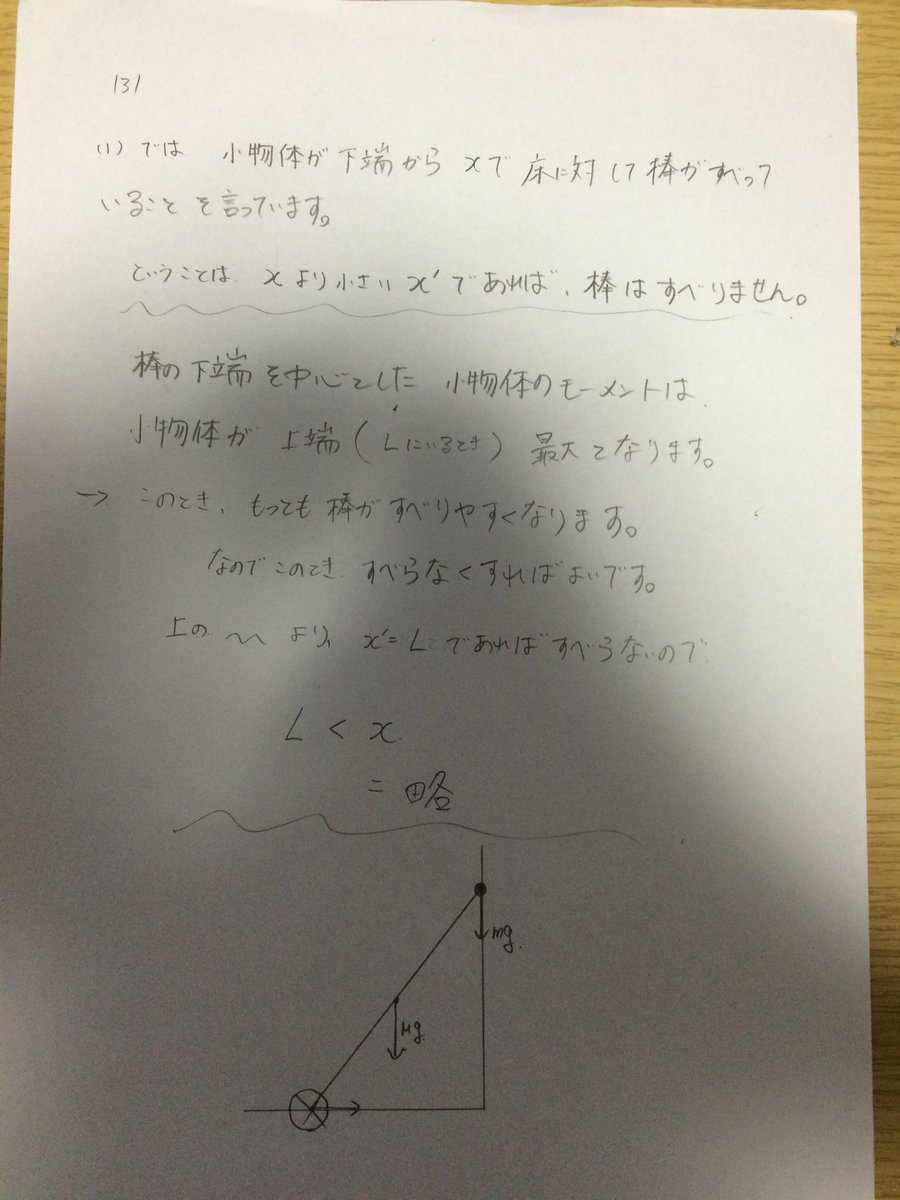 131
(1) では 小物体が下端から xで 床に対して棒がすべって
いること を言っています。
ということは xより小さい x'であれば、棒はすべりません。
棒の下端を中心とした 小物体のモーメントは
小物体が 上端(Lにいるとき) 最大となります。
→ このとき、もっても棒がすべりやすくなります。
なのでこのとき すべらなくすればよいです。
上の 〜〜 より、x'=L であればすべらないので
L < x
= 略
mg
Mg